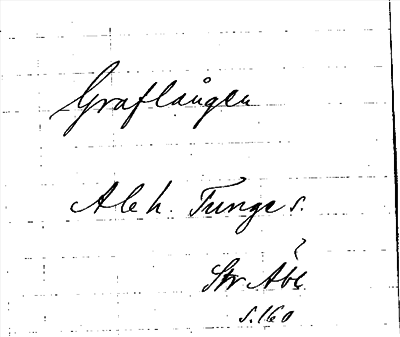 Graflången
Ale h. Tunge s.
St Åb
s. 160